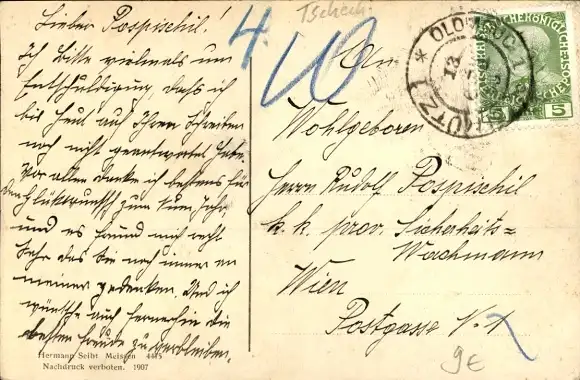 Lieber Pospischil!
Ich bitte vielmals um
Entschuldigung, dass ich
bis heut auf Ihren Schreiben
noch nicht geantwortet habe.
Vor allem danke ich bestens für
den Glückwunsch zum neuen Jahr
und es freund mich recht
sehr das Sie noch immer an
meiner gedenken. Und ich
wünsche auch fernerhin die
besten Freude zu verbleiben.
Hermann Seibt Meissen 4415
Nachdruck verboten. 1907
Tschech.
40
An
* OLOMOUC 1
OLMÜTZ 1
5 5
Wohlgeboren
Herrn Rudolf Pospischil
k. k. prov. Sicherheits=
Wachmann
Wien
Postgasse N. 1
9€